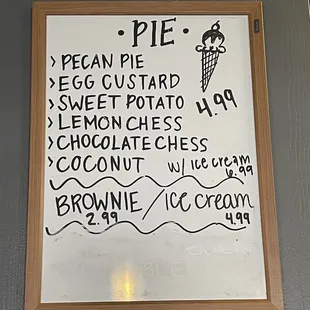 · PIE ·
> PECAN PIE
> EGG CUSTARD
> SWEET POTATO 4.99
> LEMON CHESS
> CHOCOLATE CHESS
> COCONUT w/ Ice cream
6.99
BROWNIE / Ice cream
2.99 4.99